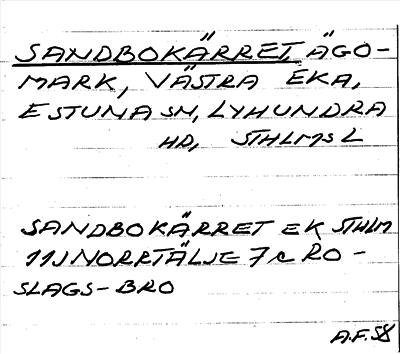 SANDBOKÄRRET, ÄGO-
MARK, VÄSTRA EKA,
ESTUNA SN, LYHUNDRA
HD, STHLMS L
SANDBOKÄRRET EK STHLM
11J NORRTÄLJE 7c RO-
SLAGS-BRO
A.F. 58